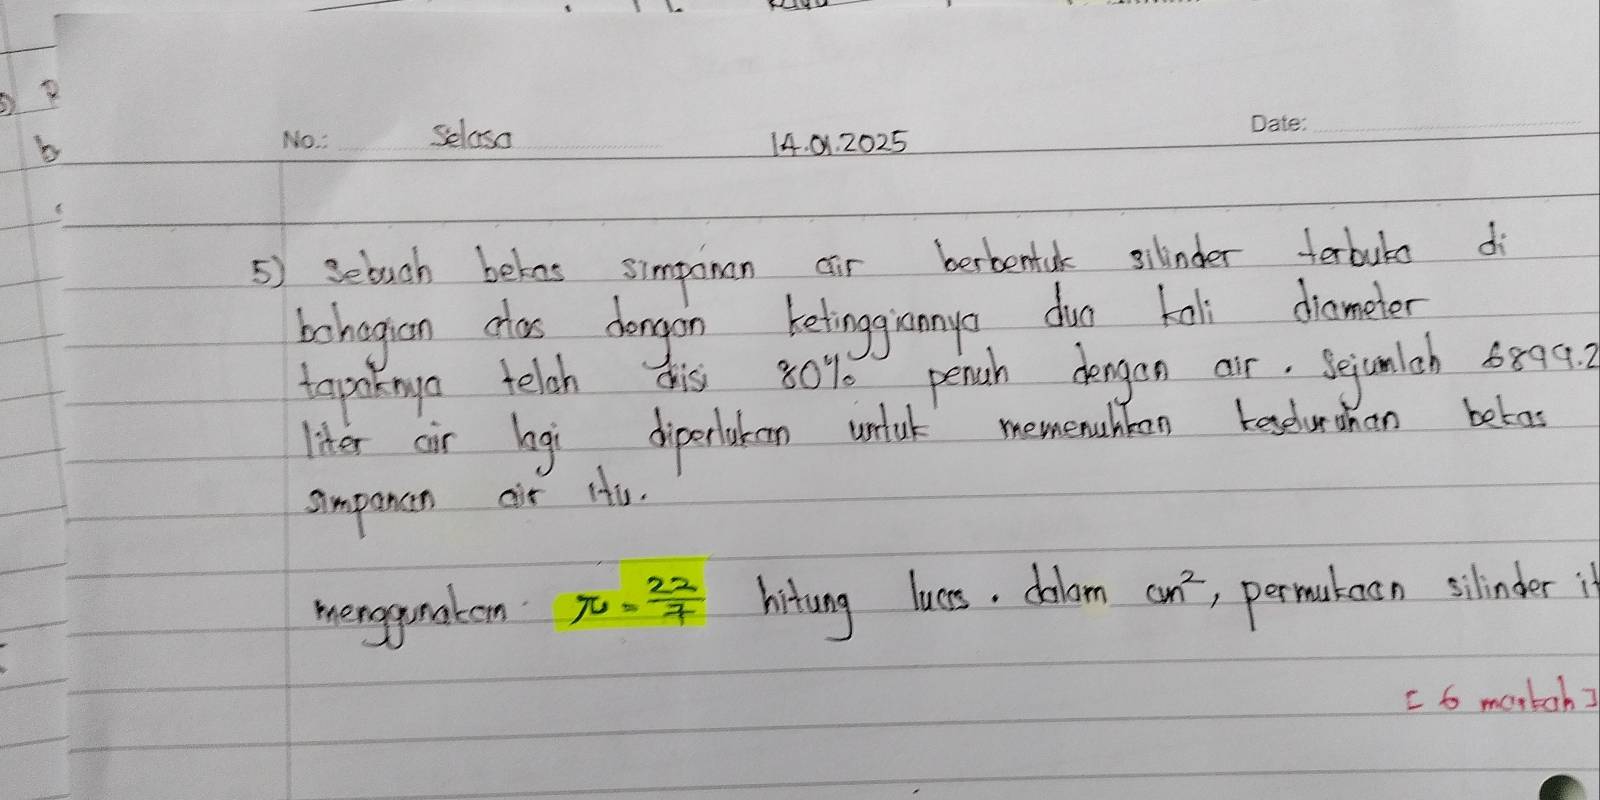 No.: Selasa 14.01.2025 Date:
5) Sebuah bekas simpanan air berbentuk silinder terbuka di
bahagian atas dengan ketinggiannya dua kali diameter
tapaknya telah diisi 80% penuh dengan air. Sejumlah 6899.2
liter air lagi diperlukan untuk memenuhkan keseluruhan bekas
simpanan air itu.
menggunakan π = 22/7 hitung luas. dalam cm², permukaan silinder it
[ 6 markah ]